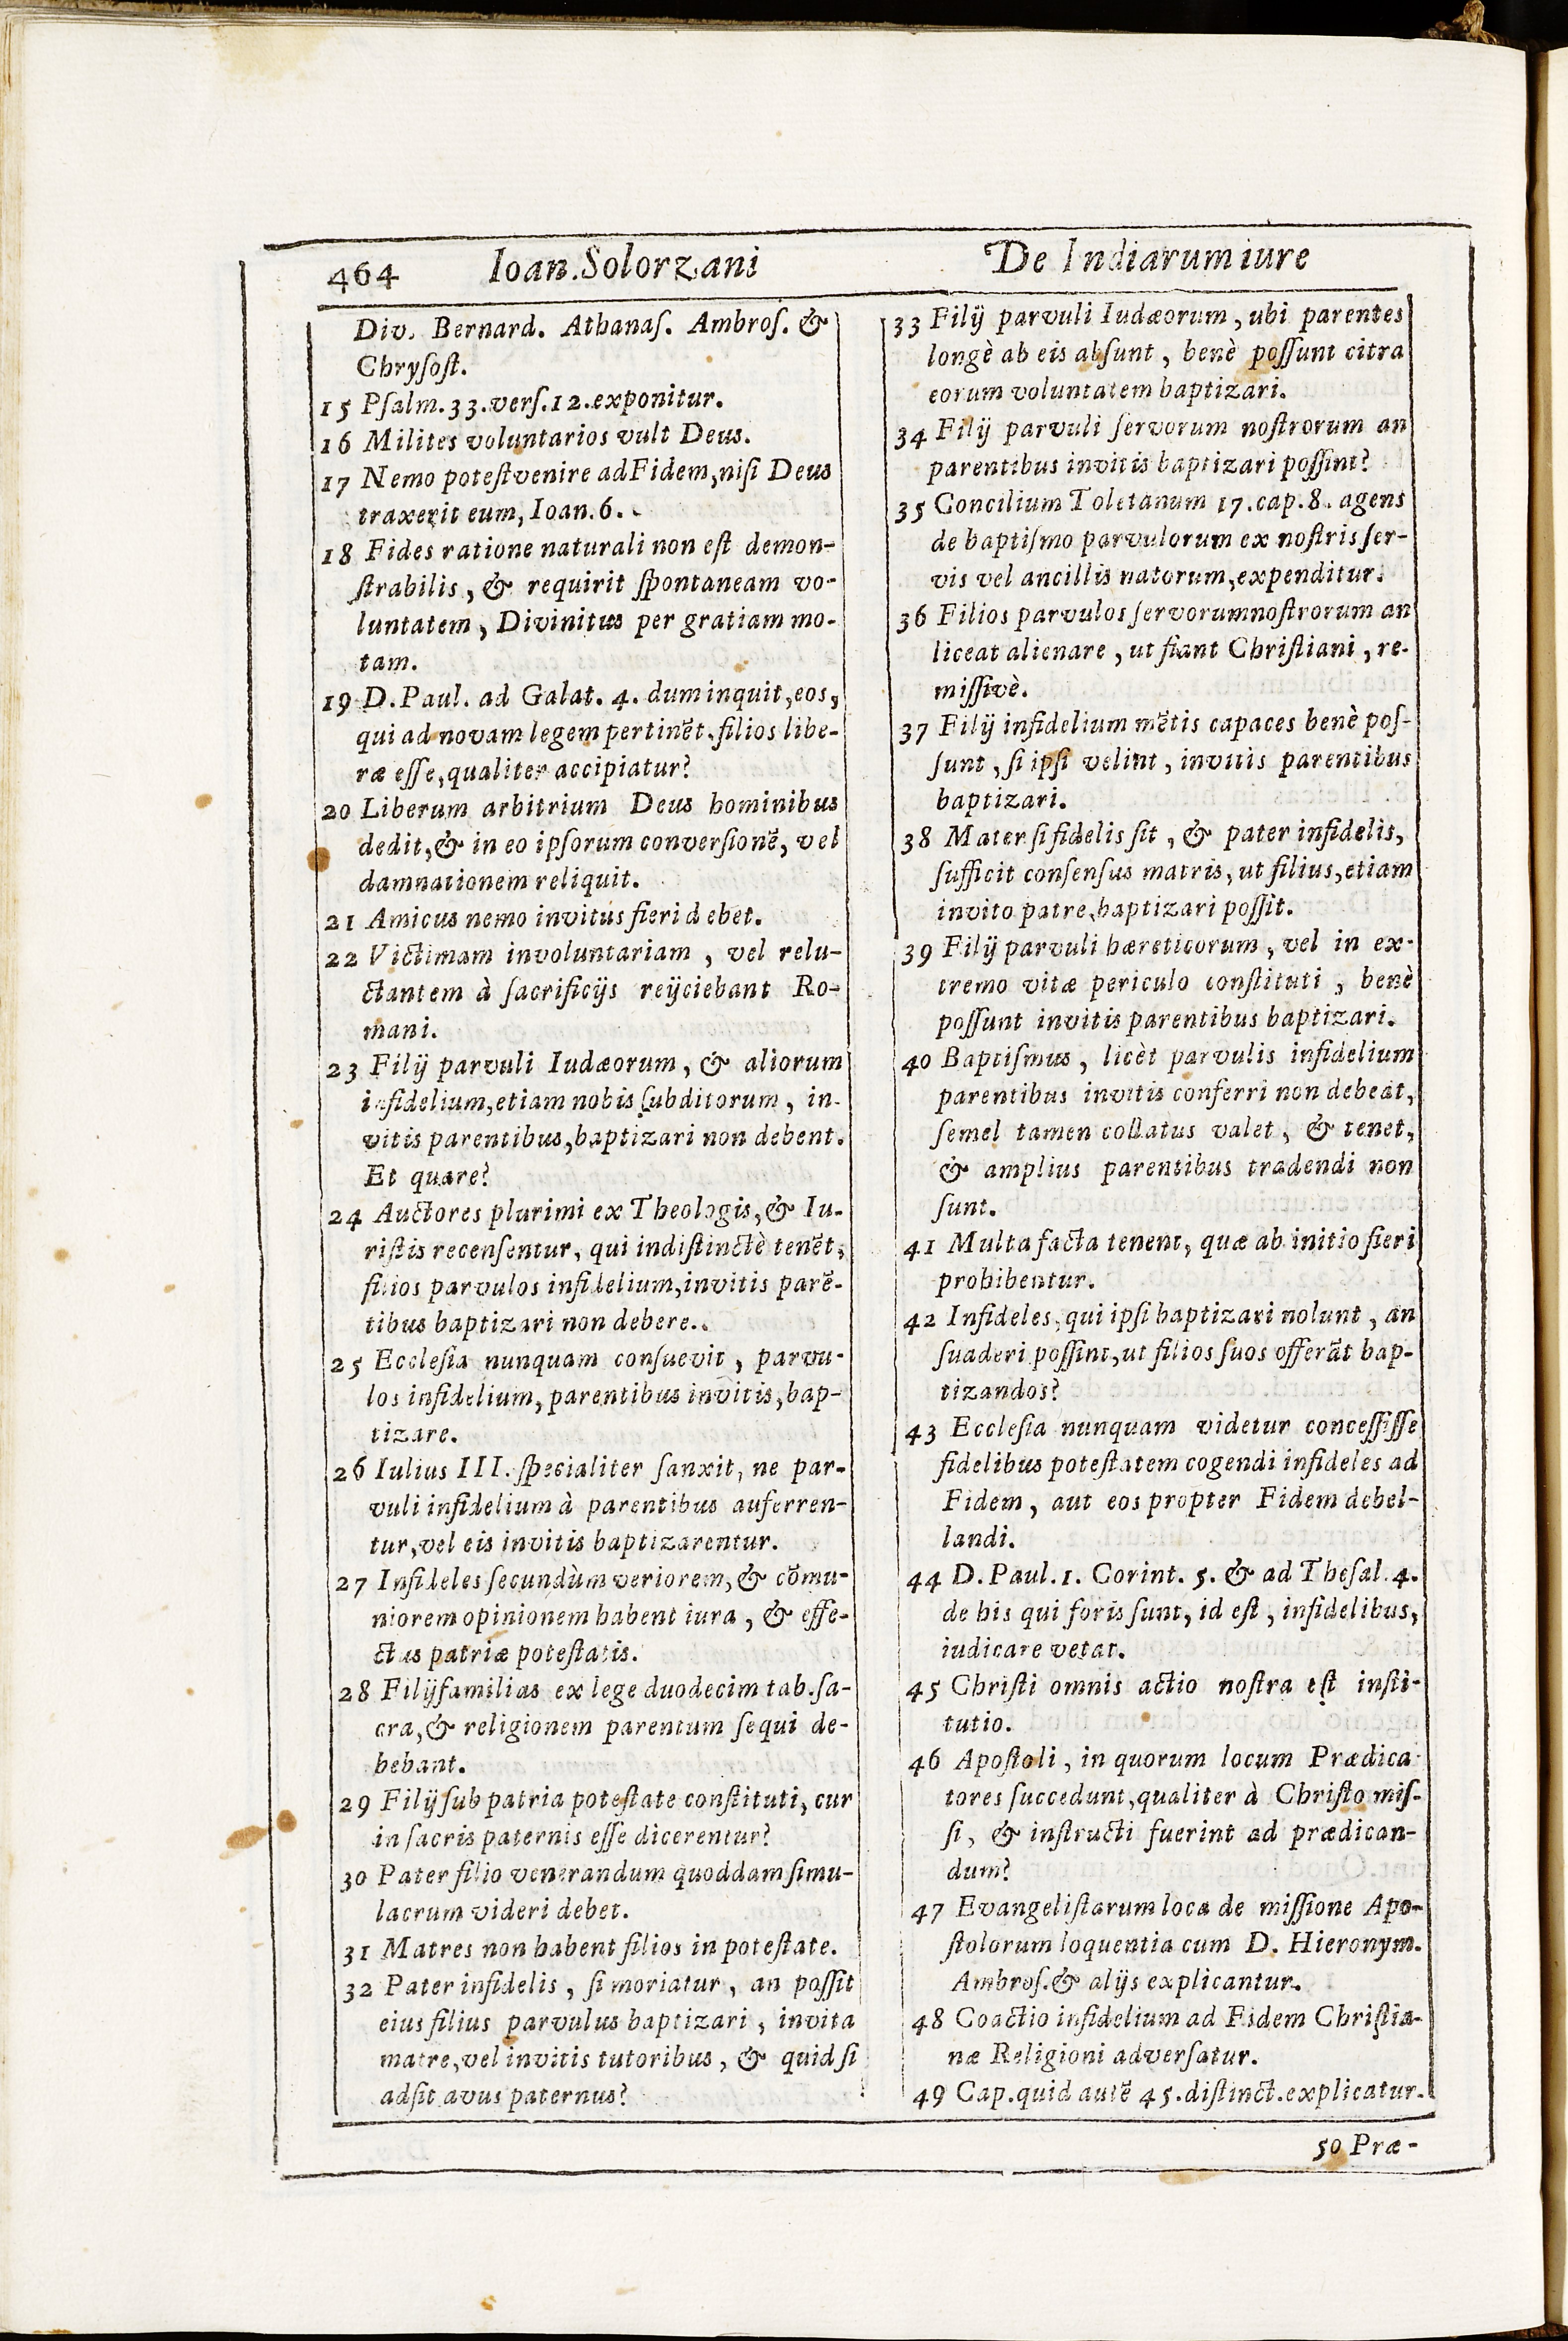 464 Ioan. Solorzani De Indiarum iure
Div. Bernard. Athanaſ. Ambroſ. &
Chryſoſt.
15 Pſalm. 33. verſ. 12. exponitur.
16 Milites voluntarios vult Deus.
17 Nemo poteſt venire ad Fidem, niſi Deus
traxerit eum, Ioan. 6.
18 Fides ratione naturali non eſt demon-
ſtrabilis, & requirit ſpontaneam vo-
luntatem, Divinitus per gratiam mo-
tam.
19 D. Paul. ad Galat. 4. dum inquit, eos,
qui ad novam legem pertinẽt, filios libe-
ræ eſſe, qualiter accipiatur?
20 Liberum arbitrium Deus hominibus
dedit, & in eo ipſorum converſionẽ, vel
damnationem reliquit.
21 Amicus nemo invitus fieri debet.
22 Victimam involuntariam, vel relu-
ctantem à ſacrificijs reijciebant Ro-
mani.
23 Filij parvuli Iudæorum, & aliorum
infidelium, etiam nobis ſubditorum, in-
vitis parentibus, baptizari non debent.
Et quare?
24 Auctores plurimi ex Theologis, & Iu-
riſtis recenſentur, qui indiſtinctè tenẽt,
filios parvulos infidelium, invitis parẽ-
tibus baptizari non debere.
25 Eccleſia nunquam conſuevit, parvu-
los infidelium, parentibus invitis, bap-
tizare.
26 Iulius III. ſpecialiter ſanxit, ne par-
vuli infidelium à parentibus auferren-
tur, vel eis invitis baptizarentur.
27 Infideles ſecundùm veriorem, & cõmu-
niorem opinionem habent iura, & effe-
ctus patriæ poteſtatis.
28 Filijfamilias ex lege duodecim tab. ſa-
cra, & religionem parentum ſequi de-
bebant.
29 Filij ſub patria poteſtate conſtituti, cur
in ſacris paternis eſſe dicerentur?
30 Pater filio venerandum quoddam ſimu-
lacrum videri debet.
31 Matres non habent filios in poteſtate.
32 Pater infidelis, ſi moriatur, an poſſit
eius filius parvulus baptizari, invita
matre, vel invitis tutoribus, & quid ſi
adſit avus paternus?
33 Filij parvuli Iudæorum, ubi parentes
longè ab eis abſunt, benè poſſunt citra
eorum voluntatem baptizari.
34 Filij parvuli ſervorum noſtrorum an
parentibus invitis baptizari poſſint?
35 Concilium Toletanum 17. cap. 8. agens
de baptiſmo parvulorum ex noſtris ſer-
vis vel ancillis natorum, expenditur.
36 Filios parvulos ſervorum noſtrorum an
liceat alienare, ut fiant Chriſtiani, re-
miſſivè.
37 Filij infidelium mẽtis capaces benè poſ-
ſunt, ſi ipſi velint, invitis parentibus
baptizari.
38 Mater ſi fidelis ſit, & pater infidelis,
ſufficit conſenſus matris, ut filius, etiam
invito patre, baptizari poſſit.
39 Filij parvuli hæreticorum, vel in ex-
tremo vitæ periculo conſtituti, benè
poſſunt invitis parentibus baptizari.
40 Baptiſmus, licèt parvulis infidelium
parentibus invitis conferri non debeat,
ſemel tamen collatus valet, & tenet,
& amplius parentibus tradendi non
ſunt.
41 Multa facta tenent, quæ ab initio fieri
prohibentur.
42 Infideles, qui ipſi baptizari nolunt, an
ſuaderi poſſint, ut filios ſuos offerãt bap-
tizandos?
43 Eccleſia nunquam videtur conceſſiſſe
fidelibus poteſtatem cogendi infideles ad
Fidem, aut eos propter Fidem debel-
landi.
44 D. Paul. 1. Corint. 5. & ad Theſal. 4.
de his qui foris ſunt, id eſt, infidelibus,
iudicare vetat.
45 Chriſti omnis actio noſtra eſt inſti-
tutio.
46 Apoſtoli, in quorum locum Prædica-
tores ſuccedunt, qualiter à Chriſto miſ-
ſi, & inſtructi fuerint ad prædican-
dum?
47 Evangeliſtarum loca de miſſione Apo-
ſtolorum loquentia cum D. Hieronym.
Ambroſ. & alijs explicantur.
48 Coactio infidelium ad Fidem Chriſtia-
næ Religioni adverſatur.
49 Cap. quid autẽ 45. diſtinct. explicatur.
50 Præ-